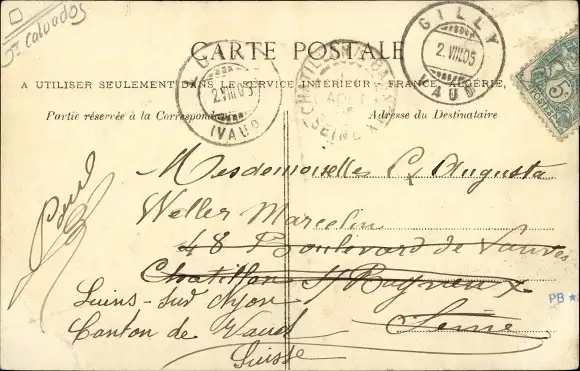 Dt Calvados
CARTE POSTALE
A UTILISER SEULEMENT DANS LE SERVICE INTÉRIEUR - FRANCE, ALGÉRIE,
Partie réservée à la Correspondance
Adresse du Destinataire
GILLY
2.VIII.05
VAUD
2.VIII.05
(VAUD)
CHATILLON
AOUT
SEINE
5
POSTES
Mesdemoiselles C. Augusta
Weller Marcelin
48 Boulevard de Vanves
Chatillon s/ Bagneux
Seine
Luins-sur Nyon
Canton de Vaud
Suisse
Paul
PB